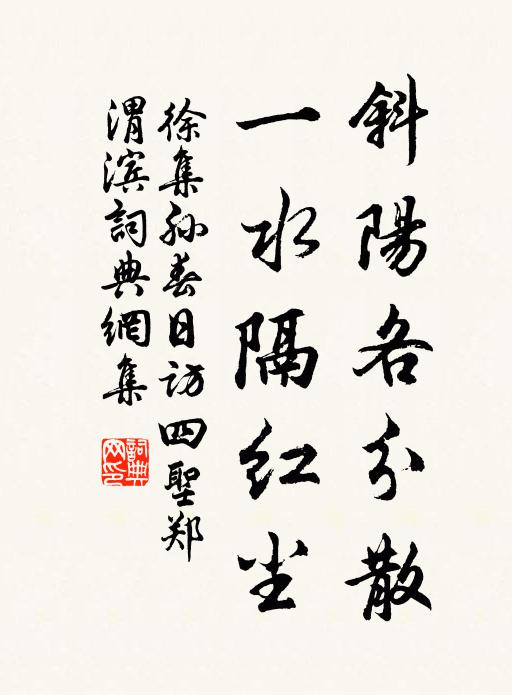 斜陽各分散
一水隔红尘
徐集孙春日访四聖郑
渭滨詞典網集
詞典網印